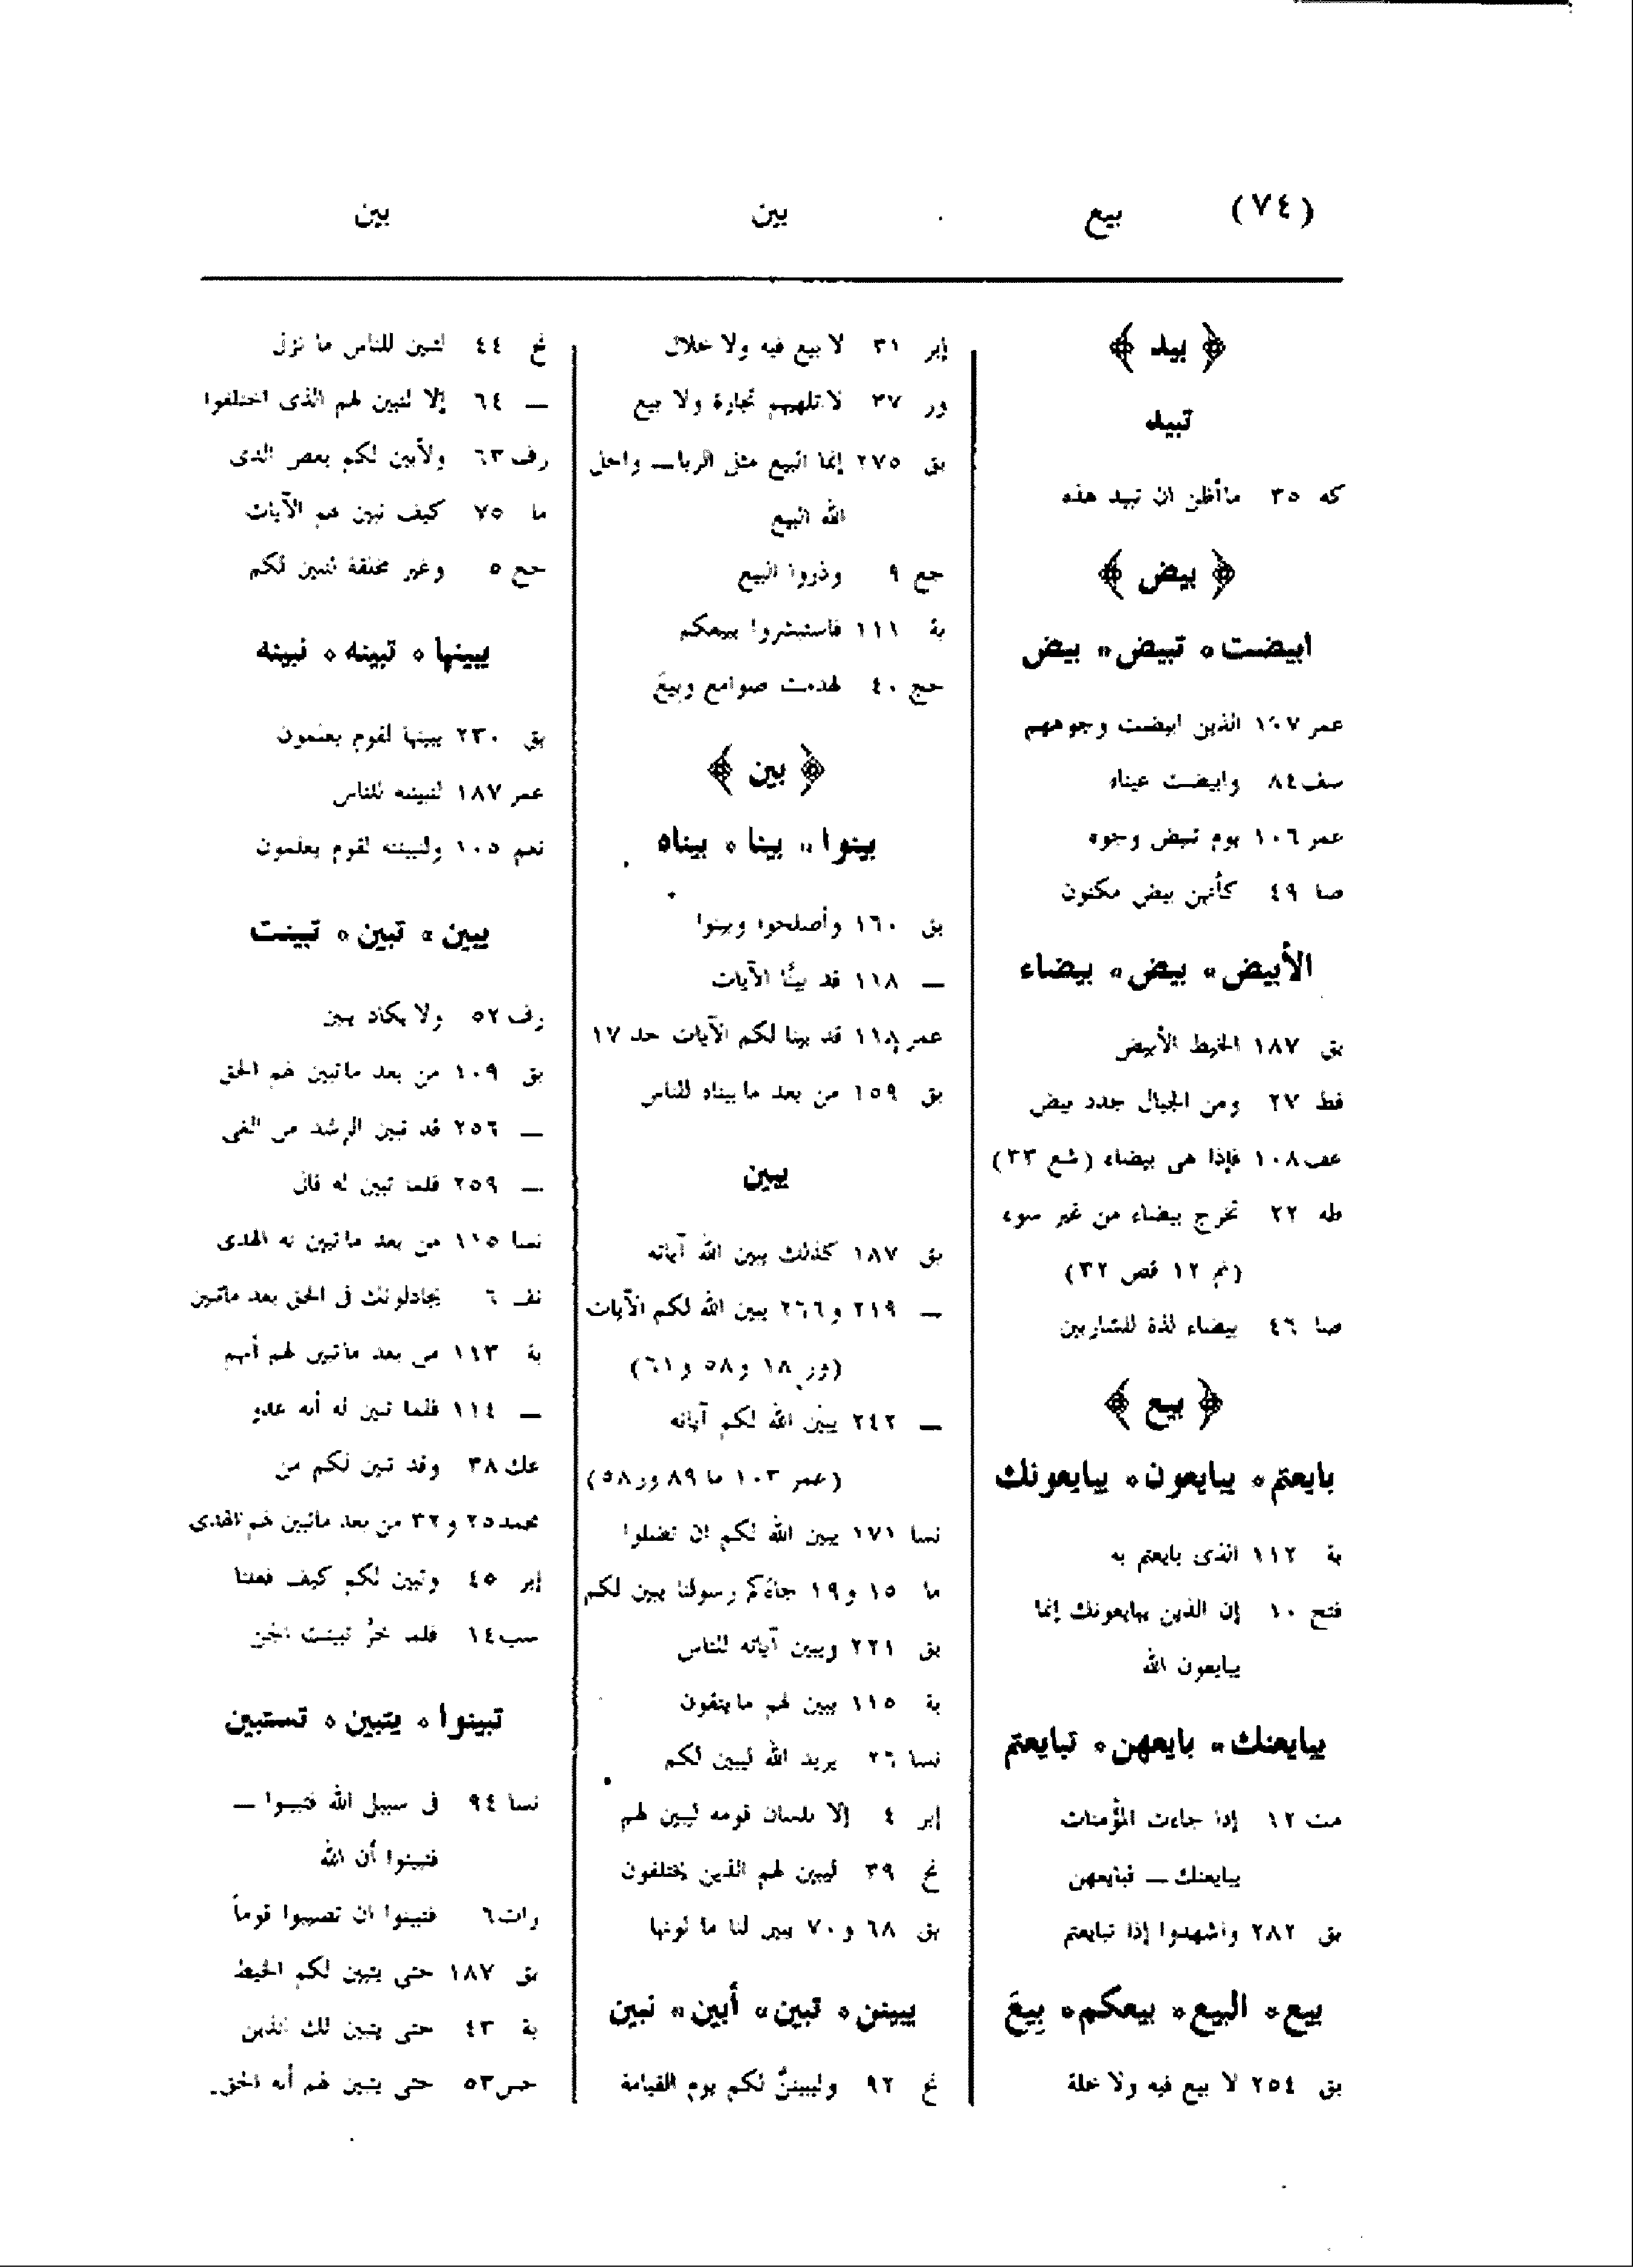 (٧٤) بيع بين بين
﴿ بيد ﴾
تبيد
كه ٣٥ ما أظن ان تبيد هذه
﴿ بيض ﴾
ابيضت ۰ تبيض ۰ بيض
عمر ١٠٧ الذين ابيضت وجوههم
سف ٨٤ وابيضت عيناه
عمر ١٠٦ يوم تبيض وجوه
صا ٤٩ كأنهن بيض مكنون
الأبيض ۰ بيض ۰ بيضاء
بق ١٨٧ الخيط الأبيض
فط ٢٧ ومن الجبال جدد بيض
عف ١٠٨ فإذا هى بيضاء (شع ٣٣)
طه ٢٢ تخرج بيضاء من غير سوء
(نم ١٢ قص ٣٢)
صا ٤٦ بيضاء لذة للشاربين
﴿ بيع ﴾
بايعتم ۰ يبايعون ۰ يبايعونك
بة ١١٢ الذى بايعتم به
فتح ١٠ إن الذين يبايعونك إنما
يبايعون الله
يبايعنك ۰ بايعهن ۰ تبايعتم
مت ١٢ إذا جاءت المؤمنات
يبايعنك — فبايعهن
بق ٢٨٢ واشهدوا إذا تبايعتم
بيع ۰ البيع ۰ بيعكم ۰ بِيعَ
بق ٢٥٤ لا بيع فيه ولا خلة
إبر ٣١ لا بيع فيه ولا خلال
ور ٣٧ لا تلهيهم تجارة ولا بيع
بق ٢٧٥ إنما البيع مثل الربا — واحل
الله البيع
جع ٩ وذروا البيع
بة ١١١ فاستبشروا ببيعكم
حج ٤٠ لهدمت صوامع وبيعَ
﴿ بين ﴾
بينوا ۰ بينا ۰ بيناه
بق ١٦٠ وأصلحوا وبينوا
— ١١٨ قد بينَّا الآيات
عمر ١١٨ قد بينا لكم الآيات حد ١٧
بق ١٥٩ من بعد ما بيناه للناس
يبين
بق ١٨٧ كذلك يبين الله آياته
— ٢١٩ و٢٦٦ يبين الله لكم الآيات
(ور ١٨ و٥٨ و٦١)
— ٢٤٢ يبين الله لكم آياته
(عمر ١٠٣ ما ٨٩ ور ٥٨)
نسا ١٧١ يبين الله لكم ان تضلوا
ما ١٥ و١٩ جاءكم رسولنا يبين لكم
بق ٢٢١ ويبين آياته للناس
بة ١١٥ يبين لهم ما يتقون
نسا ٢٦ يريد الله ليبين لكم
إبر ٤ إلا بلسان قومه ليبين لهم
نح ٣٩ ليبين لهم الذين يختلفون
بق ٦٨ و٧٠ يبين لنا ما لونها
يبينن ۰ تبين ۰ أبين ۰ نبين
نح ٩٢ وليبيننَّ لكم يوم القيامة
نح ٤٤ لتبين للناس ما نزل
— ٦٤ إلا لتبين لهم الذى اختلفوا
رف ٦٣ ولأبين لكم بعض الذى
ما ٧٥ كيف نبين لهم الآيات
حج ٥ وغير مخلقة لنبين لكم
يبينها ۰ تبينه ۰ نبينه
بق ٢٣٠ يبينها لقوم يعلمون
عمر ١٨٧ لتبيننه للناس
نعم ١٠٥ ولنبينه لقوم يعلمون
يبين ۰ تبين ۰ تبينت
رف ٥٢ ولا يكاد يبين
بق ١٠٩ من بعد ما تبين لهم الحق
— ٢٥٦ قد تبين الرشد من الغى
— ٢٥٩ فلما تبين له قال
نسا ١١٥ من بعد ما تبين له الهدى
نف ٦ يجادلونك فى الحق بعد ما تبين
بة ١١٣ من بعد ما تبين لهم أنهم
— ١١٤ فلما تبين له أنه عدو
عك ٣٨ وقد تبين لكم من
محمد ٢٥ و٣٢ من بعد ما تبين لهم الهدى
إبر ٤٥ وتبين لكم كيف فعلنا
سب ١٤ فلما خرَّ تبينت الجن
تبينوا ۰ يتبين ۰ تستبين
نسا ٩٤ فى سبيل الله فتبينوا —
فتبينوا أن الله
رات ٦ فتبينوا ان تصيبوا قوماً
بق ١٨٧ حتى يتبين لكم الخيط
بة ٤٣ حتى يتبين لك الذين
حس ٥٣ حتى يتبين لهم أنه الحق